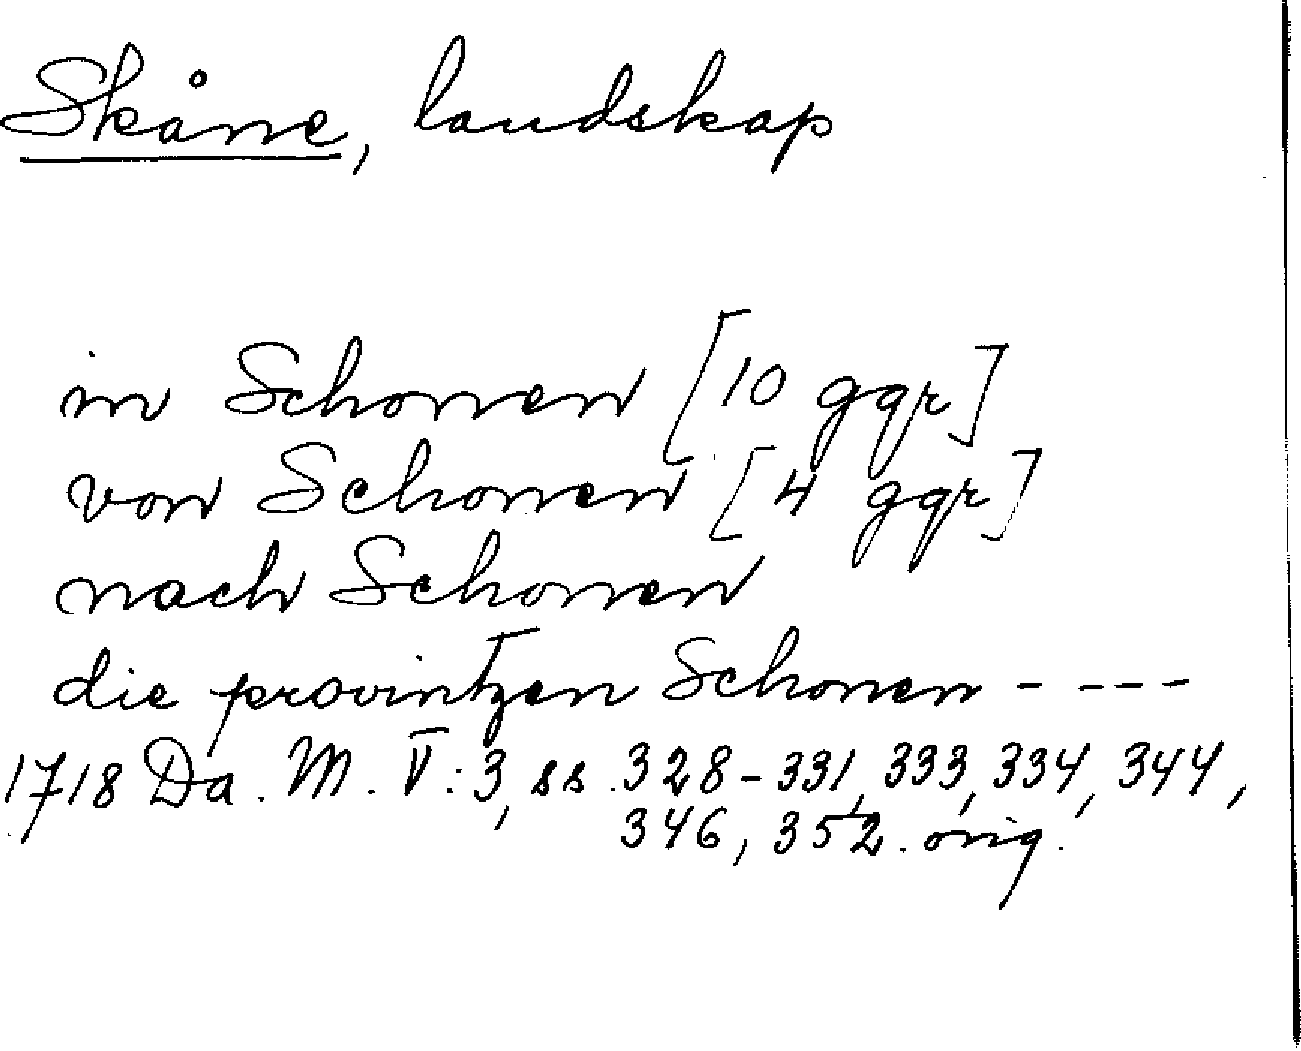 Skåne, landskap
in Schonen [10 ggr]
von Schonen [4 ggr]
nach Schonen
die provintzen Schonen - - - -
1718 Da. M. V:3, ss. 328-331, 333, 334, 344,
346, 352. orig.